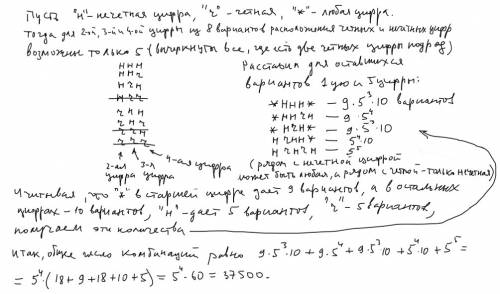 Пусть "н"-нечетная цифра, "ч" - четная, "*" - любая цифра.
Тогда для 2-ой, 3-ей и 4-ой цифры из 8 вариантов расположения четных и нечетных цифр
возможны только 5 (вычеркнуты все, где есть две четных цифры подряд)
ННН
ННЧ
НЧН
НЧЧ
ЧНН
ЧНЧ
ЧЧН
ЧЧЧ
2-ая цифра
3-я цифра
4-ая цифра
Расставим для оставшихся
вариантов 1-ую и 5 цифры:
*ННН* — 9·5³·10 вариантов
*ННЧН — 9·5⁴
*НЧН* — 9·5³·10
НЧНН* — 5⁴·10
НЧНЧН — 5⁵
(рядом с нечетной цифрой
может быть любая, а рядом с четной - только нечетная)
Учитывая, что "*" в старшей цифре дает 9 вариантов, а в остальных
цифрах - 10 вариантов, "н" - дает 5 вариантов, "ч" - 5 вариантов,
получаем эти количества
Итак, общее число комбинаций равно 9·5³·10 + 9·5⁴ + 9·5³·10 + 5⁴·10 + 5⁵ =
= 5⁴·(18+9+18+10+5) = 5⁴·60 = 37500.